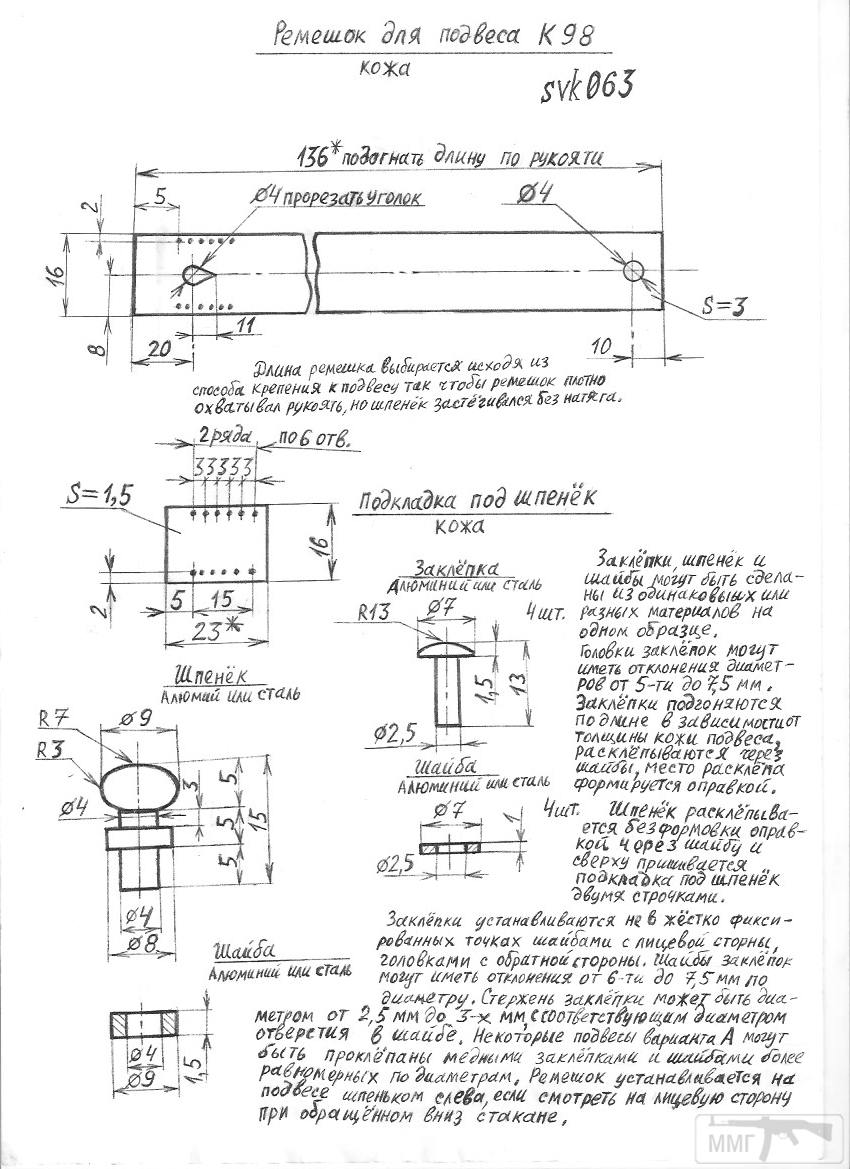 Ремешок для подвеса К98
кожа
svk063
136* подогнать длину по рукояти
5
Ø4 прорезать уголок
Ø4
2
16
8
11
20
10
S=3
Длина ремешка выбирается исходя из
способа крепения к подвесу так чтобы ремешок плотно
охватывал рукоять, но шпенёк застёгивался без натяга.
2 ряда по 6 отв.
3 3 3 3 3
S=1,5
16
2
5
15
23*
Подкладка под шпенёк
кожа
Заклёпка
Алюминий или сталь
R13
Ø7
4 шт.
1,5
13
Ø2,5
Шайба
Алюминий или сталь
Ø7
4 шт.
1
Ø2,5
Заклёпки, шпенёк и
шайбы могут быть сдела-
ны из одинаковыых или
разных материалов на
одном образце.
Головки заклёпок могут
иметь отклонения диамет-
ров от 5-ти до 7,5 мм.
Заклёпки подгоняются
по длине в зависимости от
толщины кожи подвеса,
расклёпываются через
шайбы, место расклёпа
формируется оправкой.
Шпенёк расклёпыва-
ется без формовки оправ-
кой через шайбу и
сверху пришивается
подкладка под шпенёк
двумя строчками.
Шпенёк
Алюмий или сталь
R7
Ø9
R3
Ø4
3
5
5
5
15
Ø4
Ø8
Шайба
Алюминий или сталь
Ø4
Ø9
1,5
Заклёпки устанавливаются не в жёстко фикси-
рованных точках шайбами с лицевой сторны,
головками с обратной стороны. Шайбы заклёпок
могут иметь отклонения от 6-ти до 7,5 мм по
диаметру. Стержень заклёпки может быть диа-
метром от 2,5 мм до 3-х мм, с соответствующим диаметром
отверстия в шайбе. Некоторые подвесы варианта А могут
быть проклёпаны медными заклёпками и шайбами более
равномерных по диаметрам. Ремешок устанавливается на
подвесе шпеньком слева, если смотреть на лицевую сторону
при обращённом вниз стакане.
ММГ